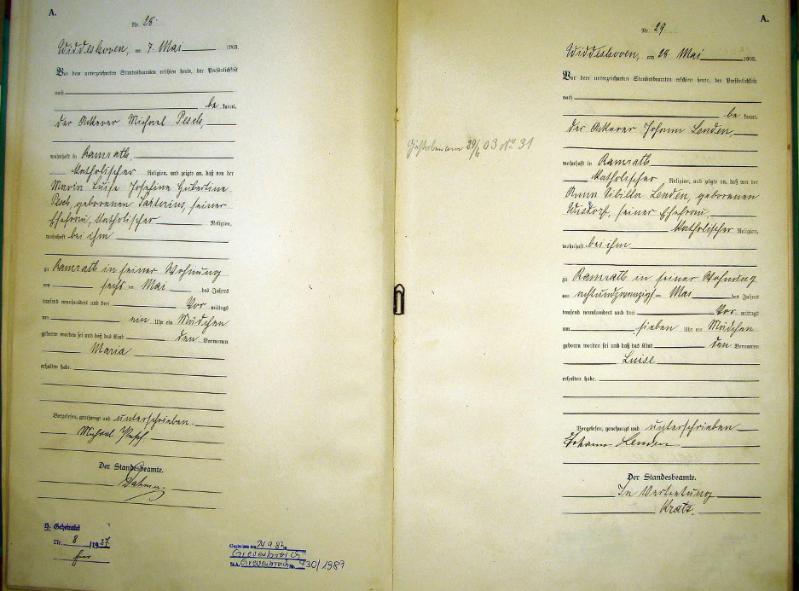 A.
Nr. 28
Widdeshoven, am 7. Mai 1903.
Vor dem unterzeichneten Standesbeamten erschien heute, der Persönlichkeit
nach
be kannt,
der Ackerer Michael Pesch,
wohnhaft in Ramrath
katholischer Religion, und zeigte an, daß von der
Maria Luise Josefine Hubertine
Pesch, geborenen seiner
Ehefrau, katholischer Religion,
wohnhaft bei ihm
zu Ramrath in seiner Wohnung
am sechs ten Mai des Jahres
tausend neunhundert und drei Vor mittags
um ein Uhr ein Mädchen
geboren worden sei und daß das Kind den Vornamen
Maria
erhalten habe.
Vorgelesen, genehmigt und unterschrieben
Michael Pesch
Der Standesbeamte.
H. Geheiratet
Nr. 8 /1927
24.9.87
Grevenbroich
St.A. Grevenbroich Nr. 430/1987
29/6 03 No 31
A.
Nr. 29
Widdeshoven, am 28. Mai 1903.
Vor dem unterzeichneten Standesbeamten erschien heute, der Persönlichkeit
nach
be kannt,
der Ackerer Johann Lenden,
wohnhaft in Ramrath
katholischer Religion, und zeigte an, daß von der
Anna Sibilla Lenden, geborenen
seiner Ehefrau
katholischer Religion,
wohnhaft bei ihm
zu Ramrath in seiner Wohnung
am achtundzwanzigsten Mai des Jahres
tausend neunhundert und drei Vor mittags
um sieben Uhr ein Mädchen
geboren worden sei und daß das Kind den Vornamen
Luise
erhalten habe.
Vorgelesen, genehmigt und unterschrieben
Johann Lenden
Der Standesbeamte.
In Vertretung
Kratz.